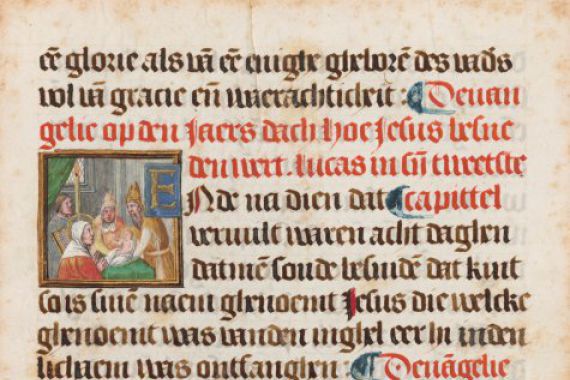 eē glorie als vā eē enighe gheborē des vad's
vol vā gracie eñ waerachticheit : Deuan
gelie op den Jaers dach hoe Jesus besne
den wert. lucas in sijn tweetste
E Nde na dien dat capittel
veruult waren acht daghen
datmē soude besnidē dat kint
so is sinē naem ghenoemt Jesus die welcke
ghenoemt was vanden inghel eer hi inden
lichaem was ontfanghen : Deuāgelie